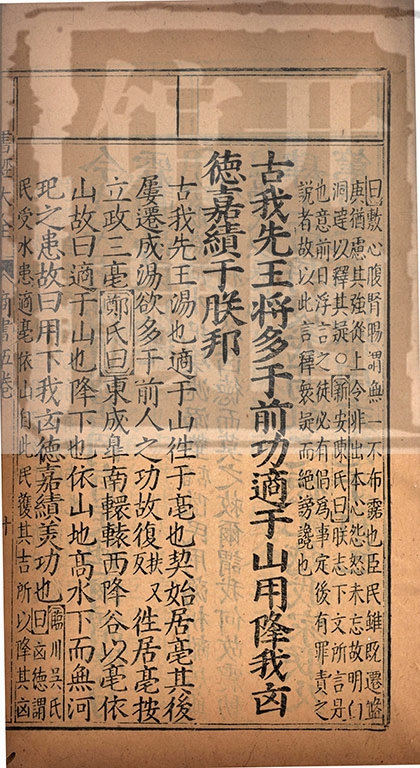 曰敷心腹腎腸謂無一不布露也臣民雖既遷盤
庚猶慮其強從上令非出本心怨怒未忘故明白
洞達以釋其疑○新安陳氏曰朕志下文所言是
也意前日浮言之徒必有倡為事定後有罪責之
說者故以此言釋衆疑而絕謗讒也
古我先王将多于前功適于山用降我凶
德嘉績于朕邦
古我先王湯也適于山徃于亳也契始居亳其後
屢遷成湯欲多于前人之功故復扶又反徃居亳按
立政三亳鄭氏曰東成臯南轘轅西降谷以亳依
山故曰適于山也降下也依山地高水下而無河
圯之患故曰用下我凶德嘉績美功也臨川吳氏曰凶德謂
民受水患適亳依山自此民獲其吉所以降其凶
書經大全 商書五卷 十